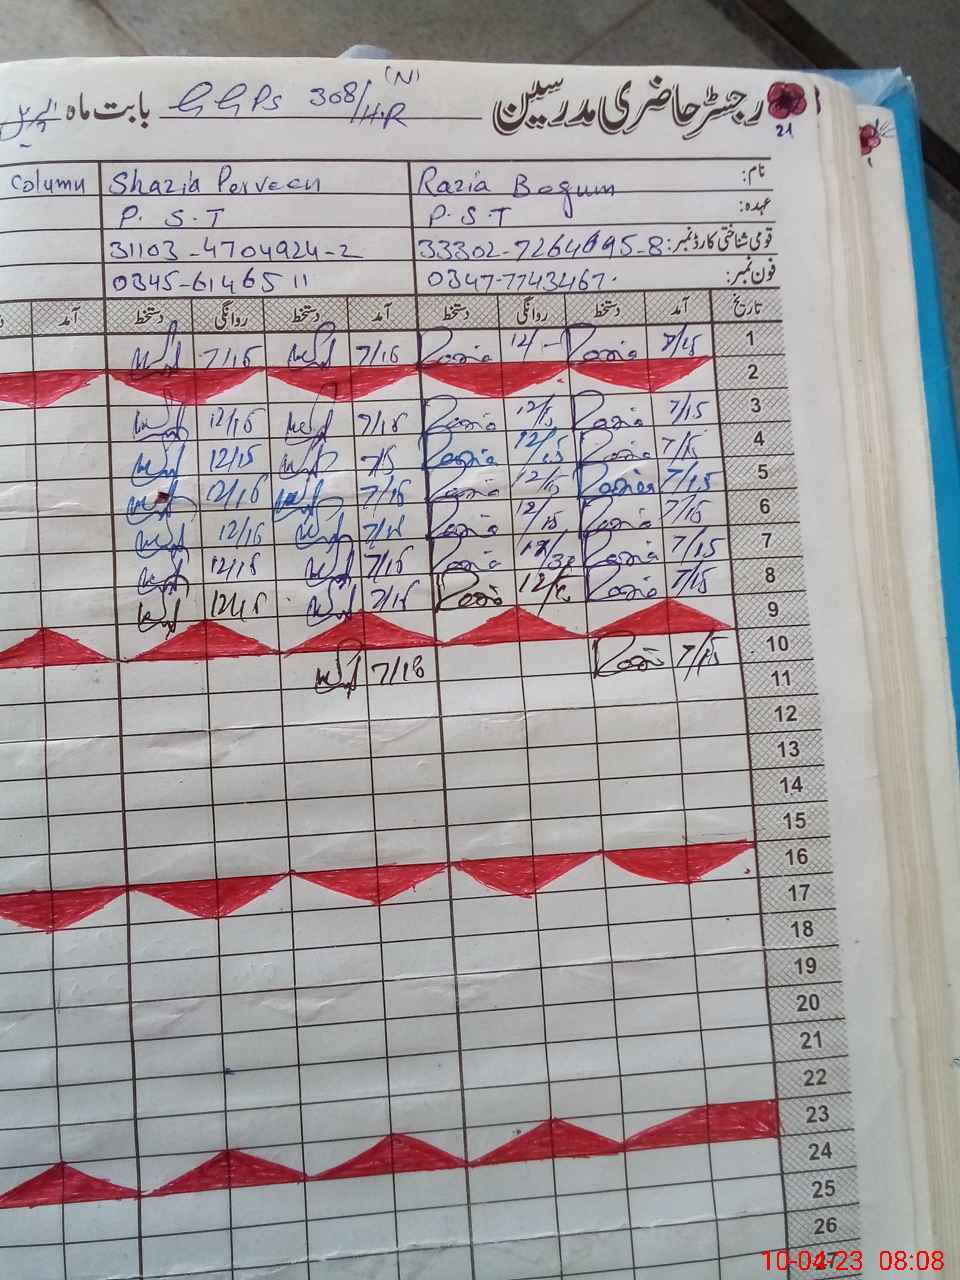 رجسٹر حاضری مدرسین GGPS 308/H.R (N) بابت ماہ
21
نام: Razia Begum Shazia Perveen Column
عہدہ: P.S.T P.S.T
قومی شناختی کارڈ نمبر: 31103-4704924-2
فون نمبر: 0347-7743467. 0345-6146511
تاریخ آمد دستخط روانگی دستخط آمد دستخط روانگی دستخط آمد
1 7/15 Razia 12/ Razia 7/16 7/16
2
3 7/15 Razia 12/15 Razia 7/16 12/16
4 7/15 Razia 12/15 Razia 7/15 12/15
5 7/15 Razia 12/15 Razia 7/16 12/16
6 7/15 Razia 12/15 Razia 7/16 12/16
7 7/15 Razia Razia 7/16 12/16
8 7/15 Razia Razia 7/16 12/16
9
10 7/15 Razia 7/18
11
12
13
14
15
16
17
18
19
20
21
22
23
24
25
26
27
10-04-23 08:08